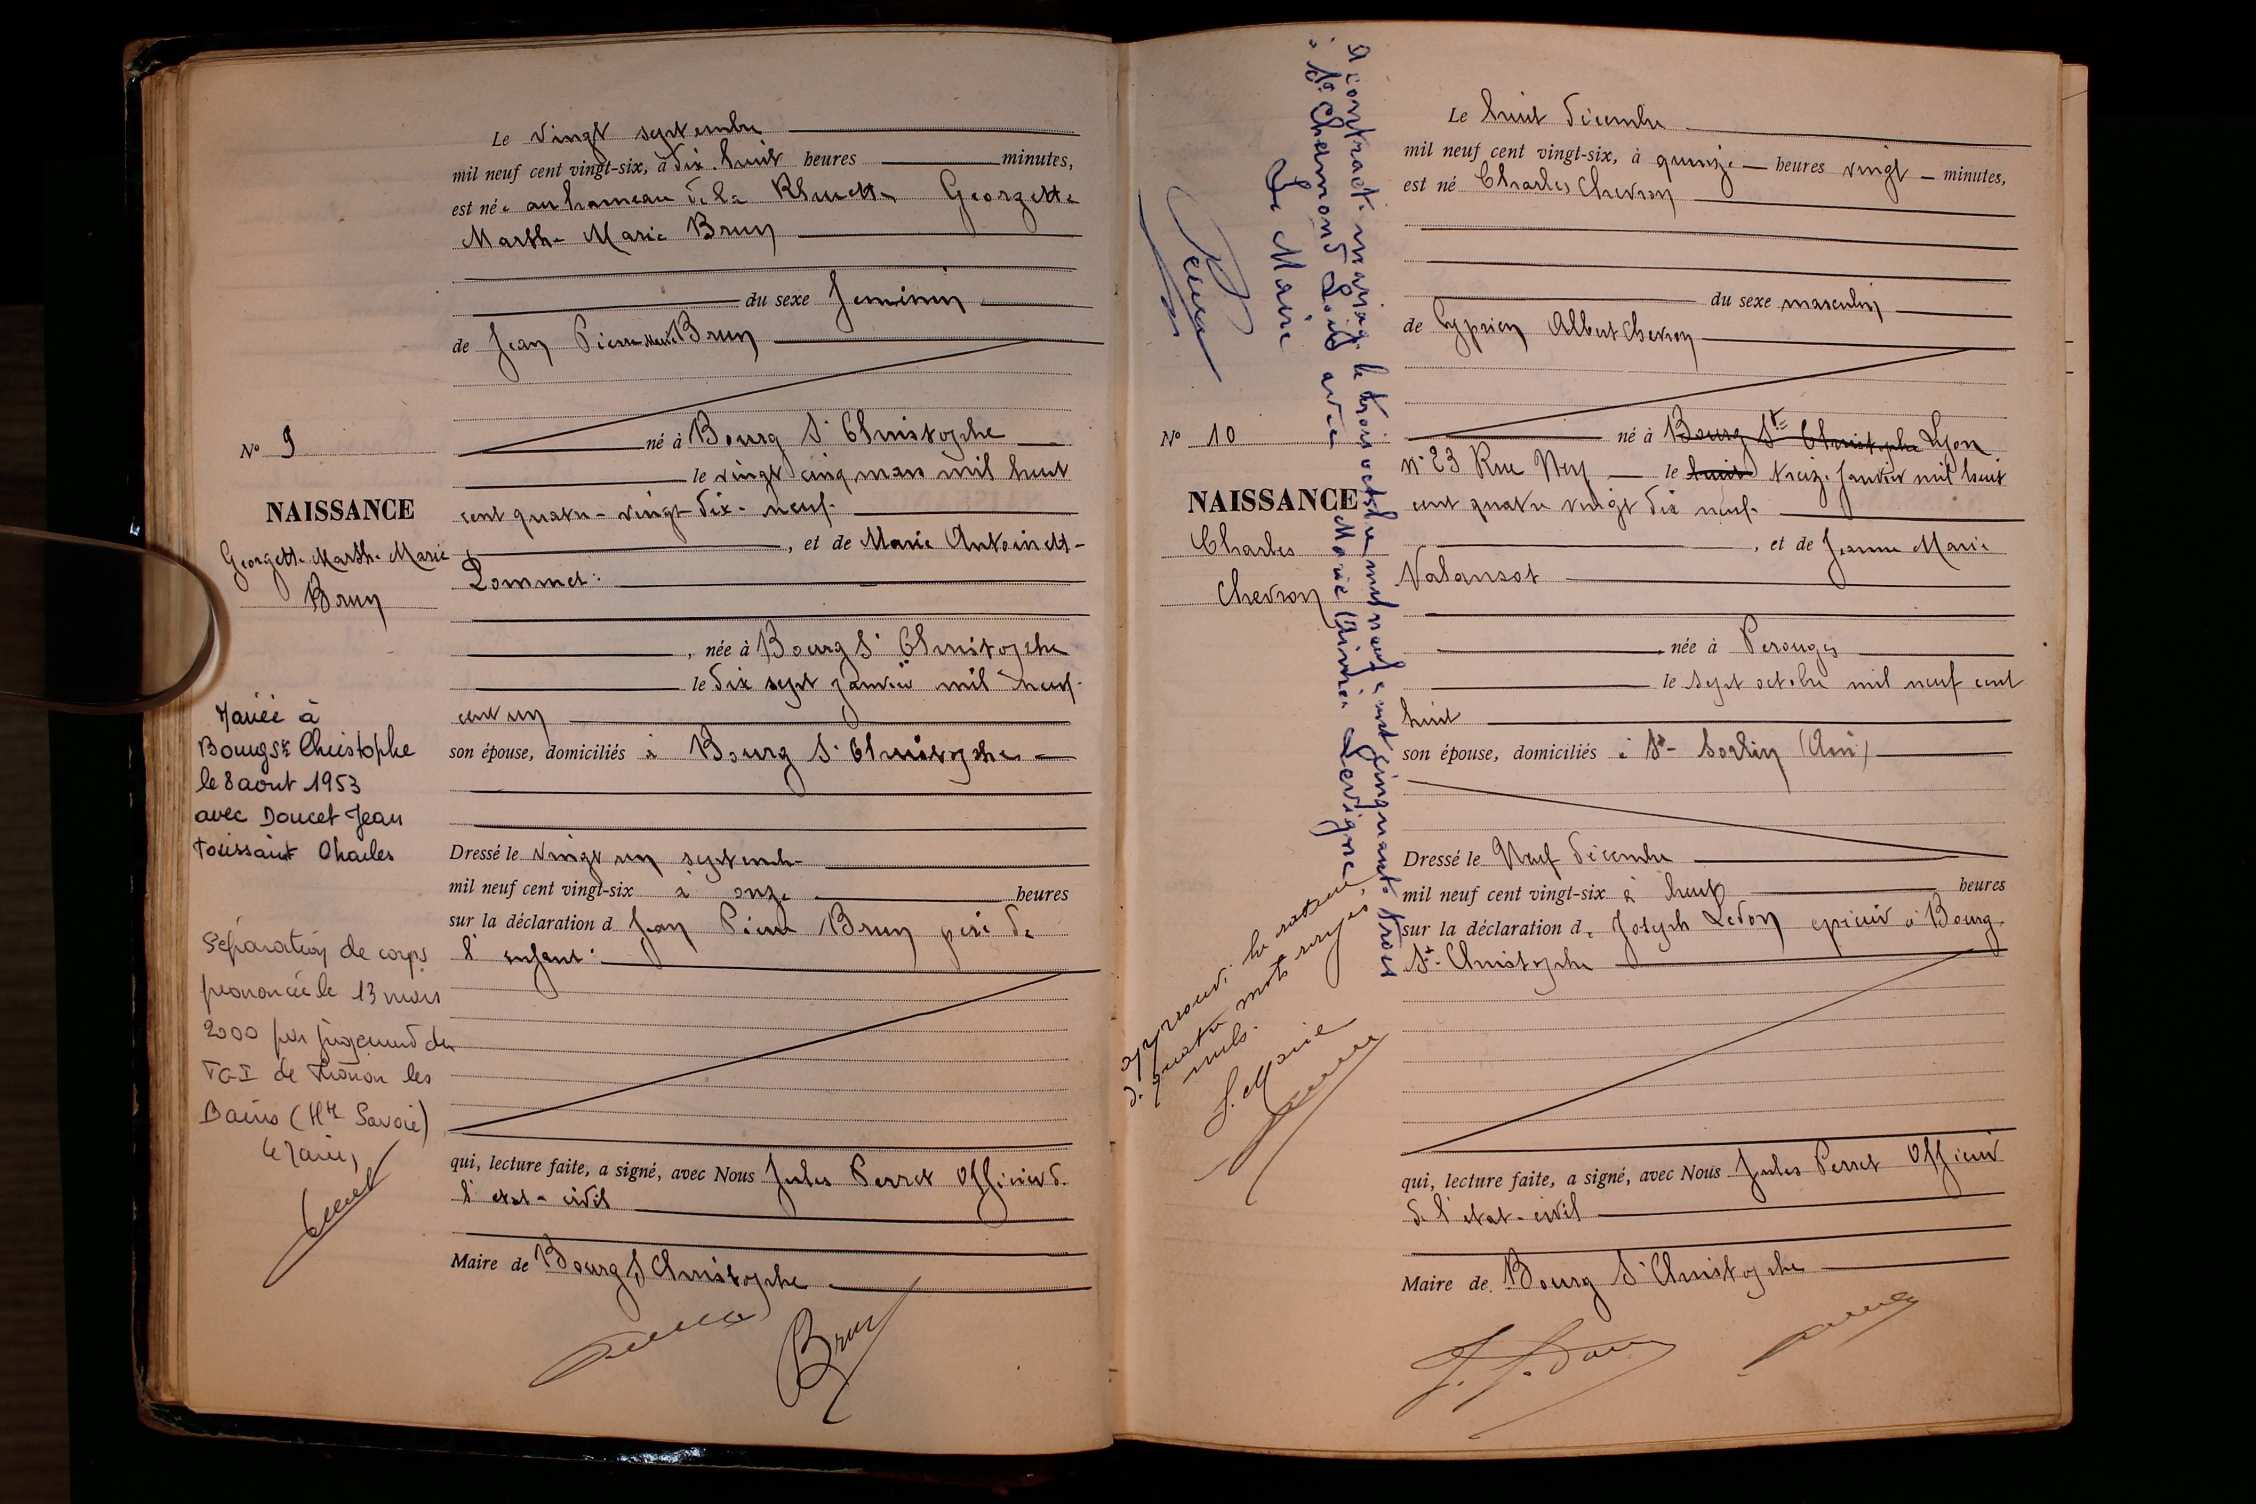 Le vingt septembre
mil neuf cent vingt-six, à dix huit heures minutes,
est née au hameau de la Georgette
Marthe Marie Brun
du sexe feminin
de Jean Pierre Marie Brun
né à Bourg St Christophe
le vingt cinq mars mil huit
cent quatre-vingt-dix-neuf
, et de Marie Antoinette
Pommet
, née à Bourg St Christophe
le dix sept janvier mil neuf
cent un
son épouse, domiciliés à Bourg St Christophe
Dressé le vingt un septembre
mil neuf cent vingt-six à onze heures
sur la déclaration d Jean Pierre Brun père de
l'enfant
qui, lecture faite, a signé, avec Nous Jules Perret Officier de
l'etat-civil
Maire de Bourg St Christophe
Brun
No 9
NAISSANCE
Georgette Marthe Marie
Brun
Mariée à
Bourg St Christophe
le 8 aout 1953
avec Doucet Jean
Toussaint Charles
Séparation de corps
prononcée le 13 mars
2000 par jugement du
TGI de Thonon les
Bains (Hte Savoie)
Le Maire,
A contracté mariage le trois octobre mil neuf cent cinquante trois
à St Chamond Loire avec Marie Aimée Lavigne
Le Maire
No 10
NAISSANCE
Charles
Chevron
approuvé la rature
de quatre mots rayés
nuls.
Le Maire
Le huit décembre
mil neuf cent vingt-six, à quinze heures vingt minutes,
est né Charles Chevron
du sexe masculin
de Cyprien Albert Chevron
né à Bourg St Christophe Lyon
No 23 Rue Neuf le huit treize janvier mil huit
cent quatre vingt dix neuf
, et de Jeanne Marie
Valansot
, née à Perouges
le sept octobre mil neuf cent
huit
son épouse, domiciliés à St- Sorlin (Ain)
Dressé le Neuf décembre
mil neuf cent vingt-six à huit heures
sur la déclaration de Joseph Ledon epicier à Bourg
St-Christophe
qui, lecture faite, a signé, avec Nous Jules Perret Officier
de l'etat-civil
Maire de Bourg St Christophe